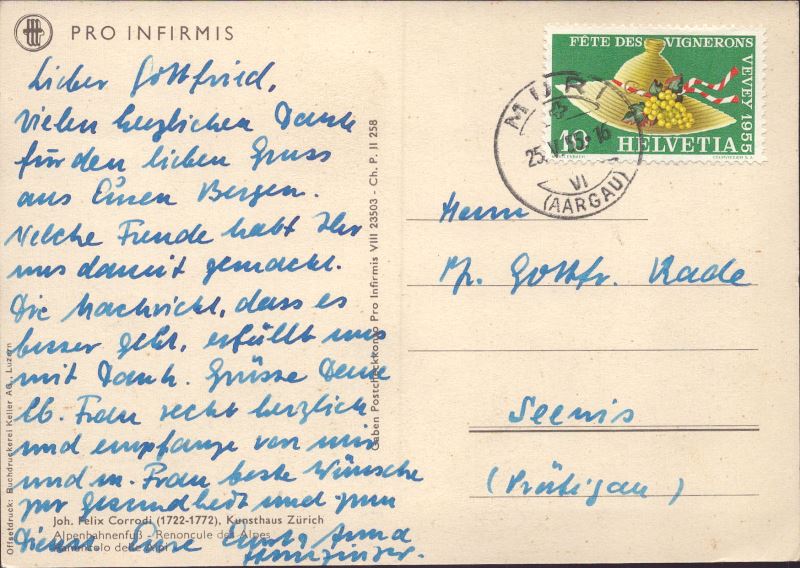 PRO INFIRMIS
Lieber Gottfried,
Vielen herzlichen Dank
für den lieben Gruss
aus Euren Bergen.
Welche Freude habt Ihr
uns damit gemacht.
Die Nachricht, dass es
besser geht, erfüllt uns
mit Dank. Grüsse Deine
lb. Frau recht herzlich
und empfange von mir
und m. Frau beste Wünsche
zur Gesundheit und zum
Dienst. Eure Anna
Joh. Felix Corrodi (1722-1772), Kunsthaus Zürich
Alpenhahnenfuß - Renoncule des Alpes
Offsetdruck: Buchdruckerei Keller AG., Luzern
Gaben Postcheckkonto Pro Infirmis VIII 23503 - Ch. P. II 258
FÊTE DES VIGNERONS
VEVEY 1955
10 HELVETIA
COURVOISIER S.A.
MURI
25.V.55-16
VI
(AARGAU)
Herrn
Gottfr. Kade
Seewis
(Prätigau)